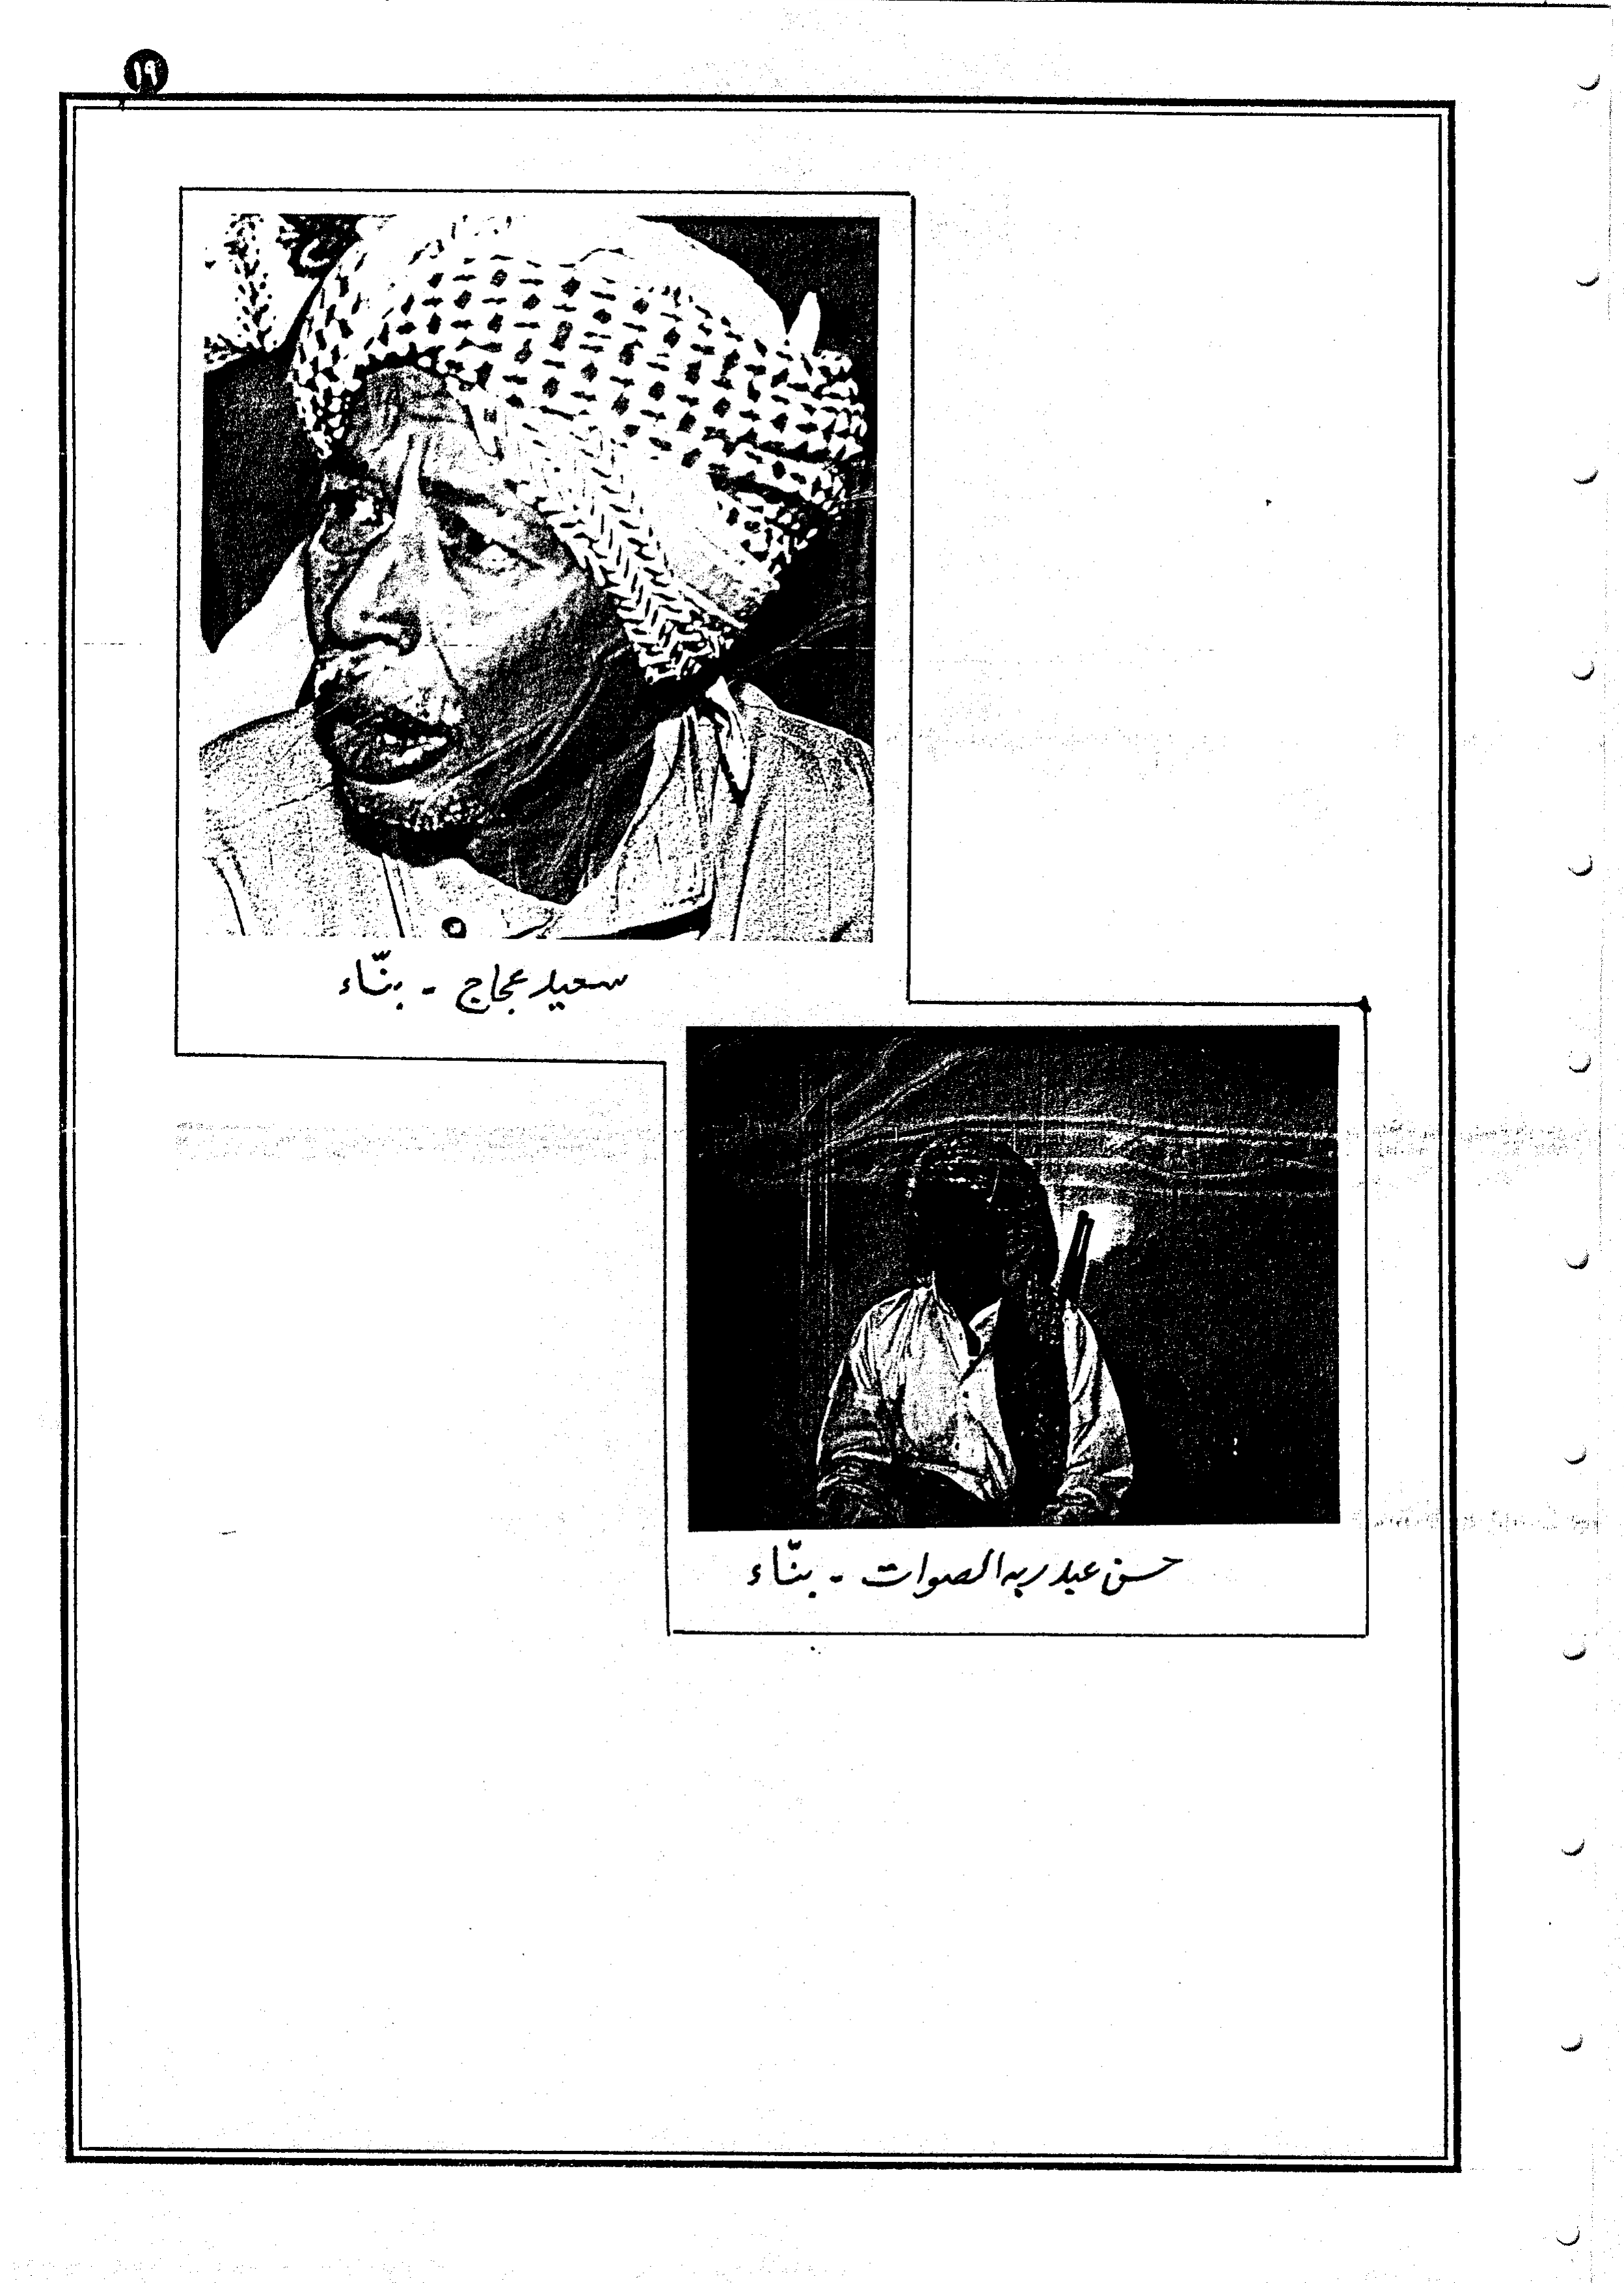 ١٩
سعيد عجاج - بنّاء
حسن عبدربه الصوات - بنّاء